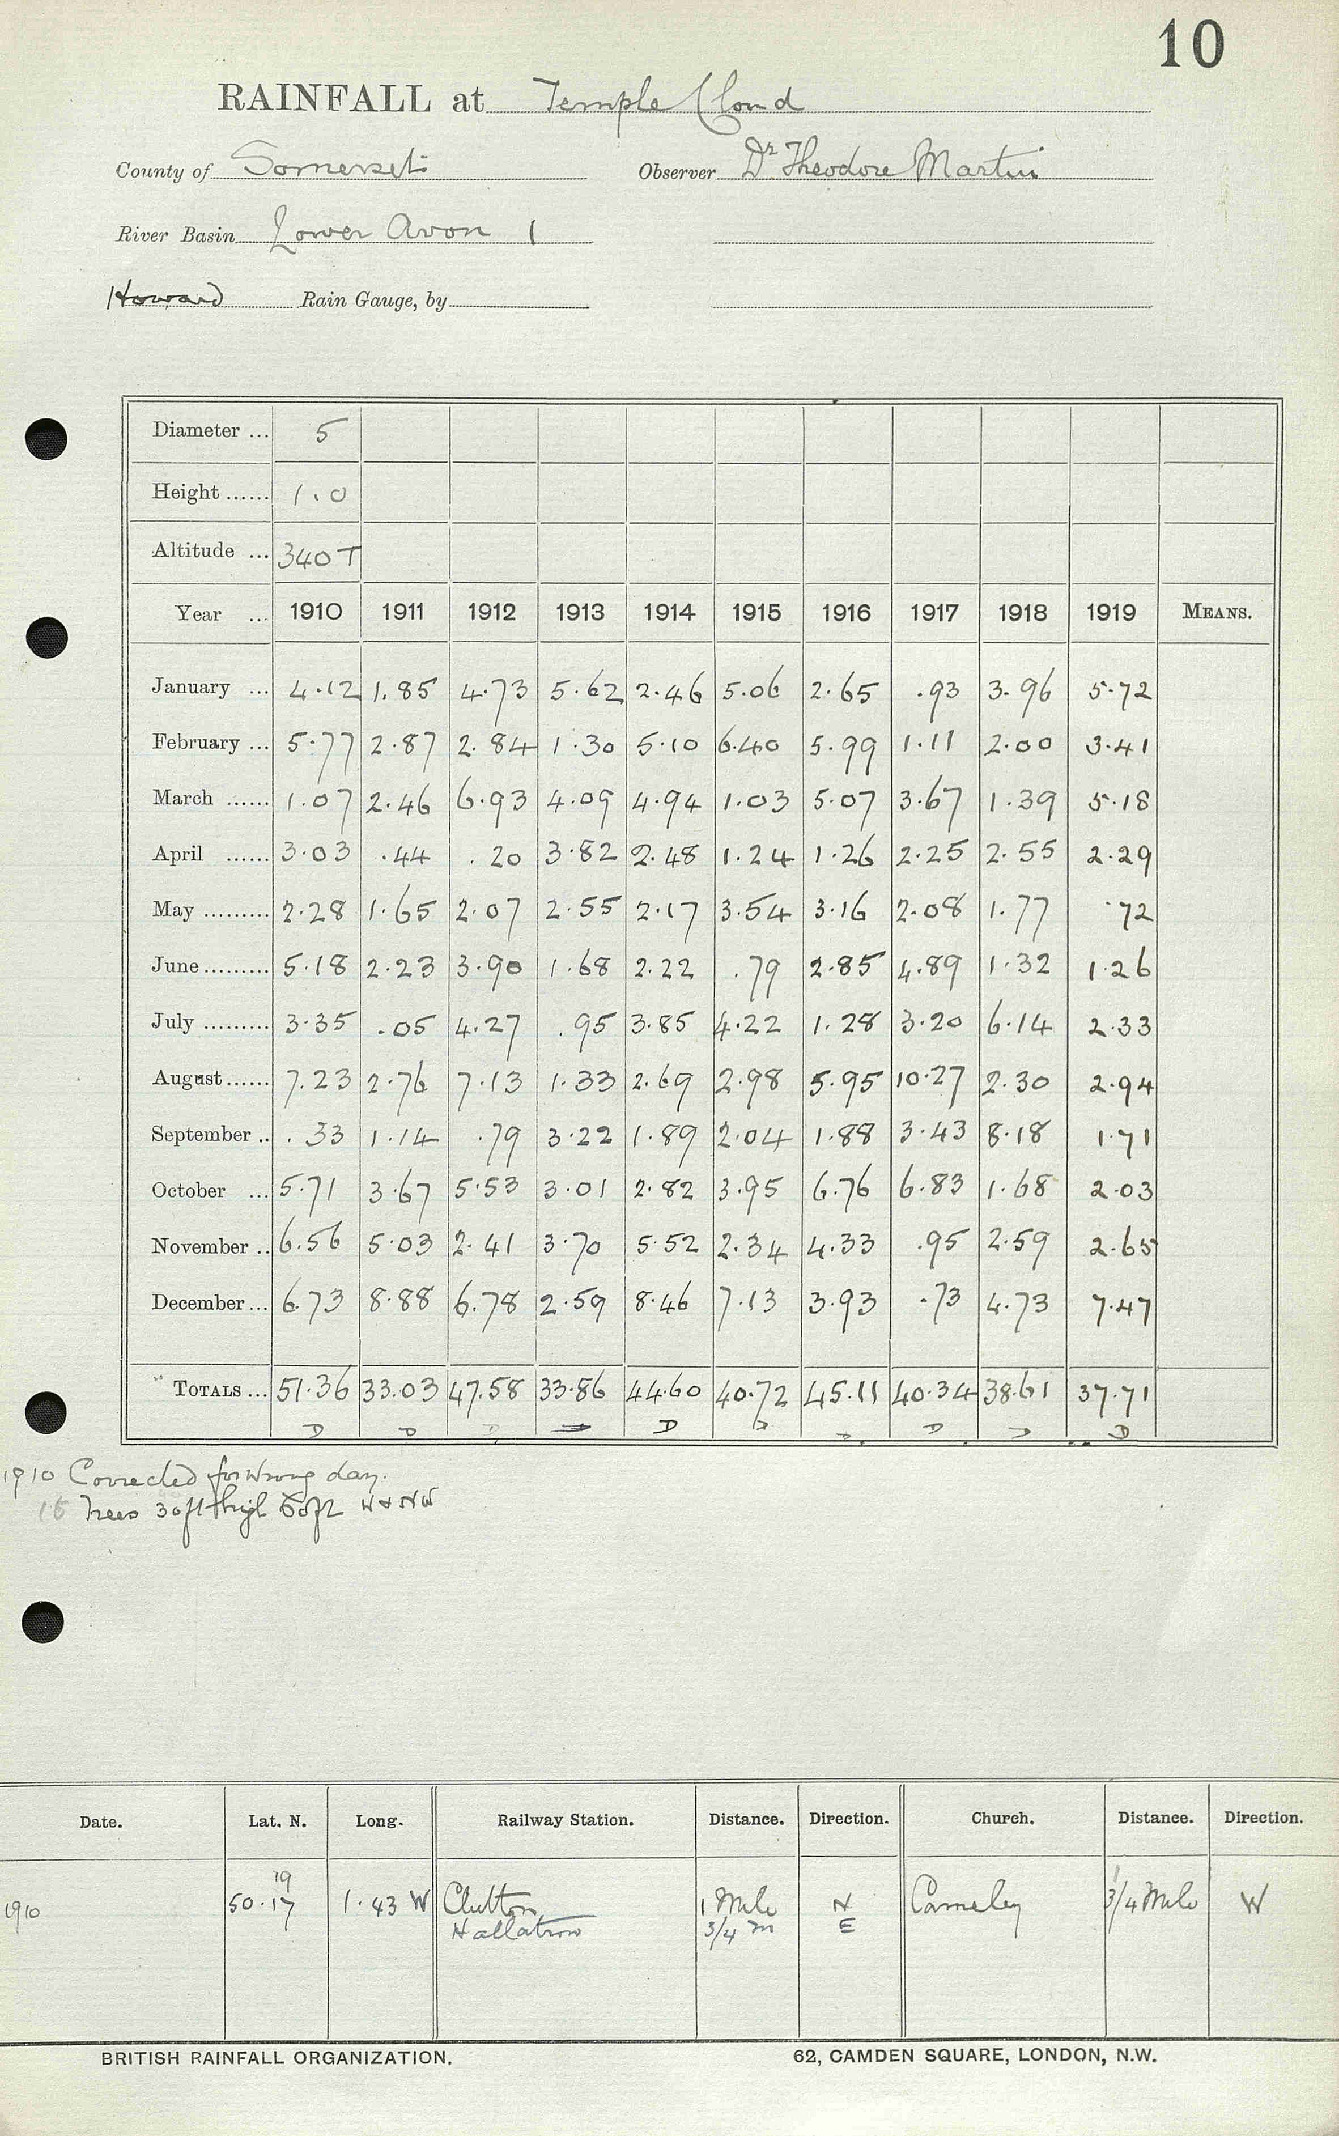 10
RAINFALL at Temple Cloud
County of Somerset Observer Dr Theodore Martin
River Basin Lower Avon 1
Howard Rain Gauge, by
Diameter ... 5
Height ...... 1.0
Altitude ... 340 T
Year ... 1910 1911 1912 1913 1914 1915 1916 1917 1918 1919 MEANS.
January ... 4.12 1.85 4.73 5.62 2.46 5.06 2.65 .93 3.96 5.72
February ... 5.77 2.87 2.84 1.30 5.10 6.40 5.99 1.11 2.00 3.41
March ...... 1.07 2.46 6.93 4.09 4.94 1.03 5.07 3.67 1.39 5.18
April ...... 3.03 .44 .20 3.82 2.48 1.24 1.26 2.25 2.55 2.29
May ......... 2.28 1.65 2.07 2.55 2.17 3.54 3.16 2.08 1.77 .72
June ......... 5.18 2.23 3.90 1.68 2.22 .79 2.85 4.89 1.32 1.26
July ......... 3.35 .05 4.27 .95 3.85 4.22 1.28 3.20 6.14 2.33
August ...... 7.23 2.76 7.13 1.33 2.69 2.98 5.95 10.27 2.30 2.94
September .. .33 1.14 .79 3.22 1.89 2.04 1.88 3.43 8.18 1.71
October ... 5.71 3.67 5.53 3.01 2.82 3.95 6.76 6.83 1.68 2.03
November .. 6.56 5.03 2.41 3.70 5.52 2.34 4.33 .95 2.59 2.65
December ... 6.73 8.88 6.78 2.59 8.46 7.13 3.93 .73 4.73 7.47
TOTALS ... 51.36 33.03 47.58 33.86 44.60 40.72 45.11 40.34 38.61 37.71
D D D D D D D D D
1910 Corrected for wrong day.
15 Trees 30ft high 60ft W & NW
Date. Lat. N. Long. Railway Station. Distance. Direction. Church. Distance. Direction.
19
1910 50.17 1.43 W Clutton 1 Mile N Cameley 3/4 Mile W
Hallatrow 3/4 m E
BRITISH RAINFALL ORGANIZATION. 62, CAMDEN SQUARE, LONDON, N.W.